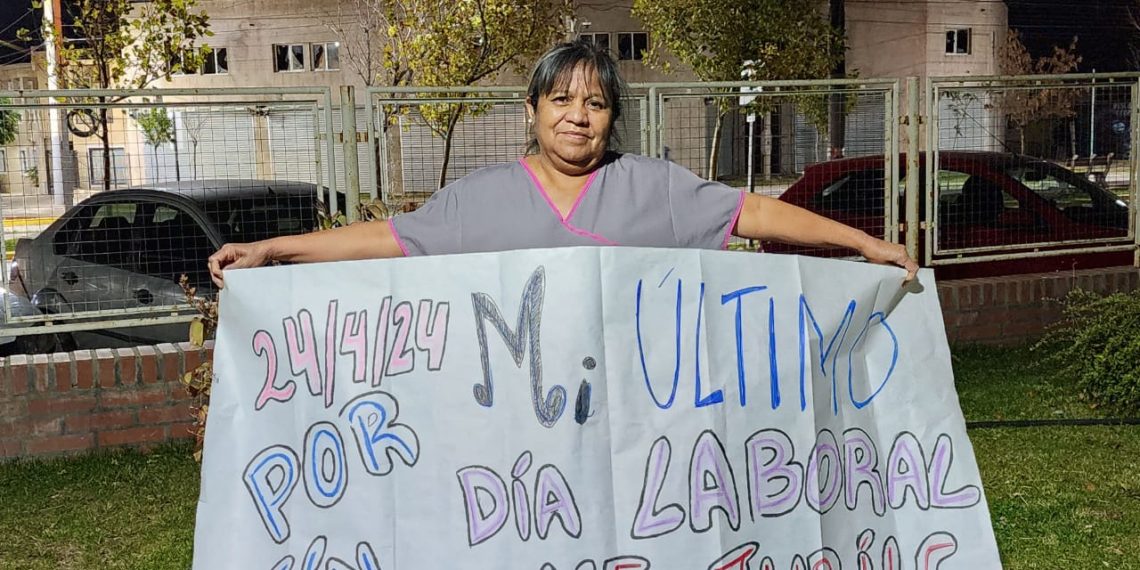 24/4/24 Mi ÚLTIMO
POR DÍA LABORAL